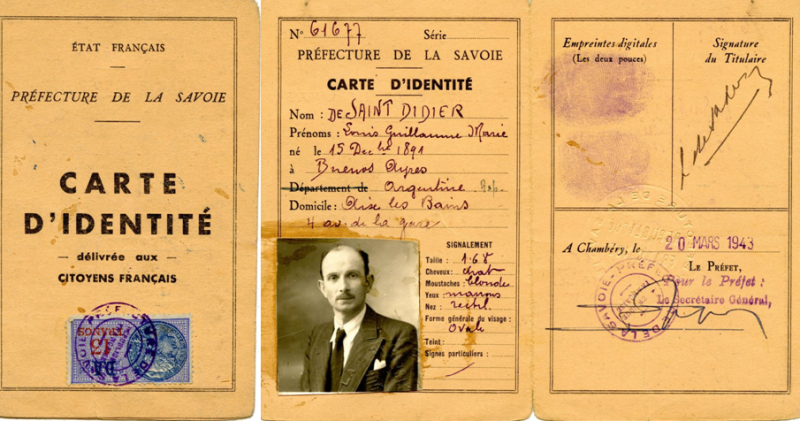 ÉTAT FRANÇAIS
PRÉFECTURE DE LA SAVOIE
CARTE
D'IDENTITÉ
— délivrée aux —
CITOYENS FRANÇAIS
13
FRANCS
DA
N° 61677 Série
PRÉFECTURE DE LA SAVOIE
CARTE D'IDENTITÉ
Nom : DE SAINT DIDIER
Prénoms : Louis Guillaume Marie
né le 15 Decbre 1891
à Buenos Ayres
Département de Argentine Rép.
Domicile : Aix les Bains
4 av. de la gare
SIGNALEMENT
Taille : 1.68
Cheveux : chat
Moustaches : blondes
Yeux marrons
Nez : rectil.
Forme générale du visage :
Ovale
Teint :
Signes particuliers :
Empreintes digitales
(Les deux pouces)
Signature
du Titulaire
A Chambéry, le 20 MARS 1943
LE PRÉFET,
Pour le Préfet :
Le Secrétaire Général,